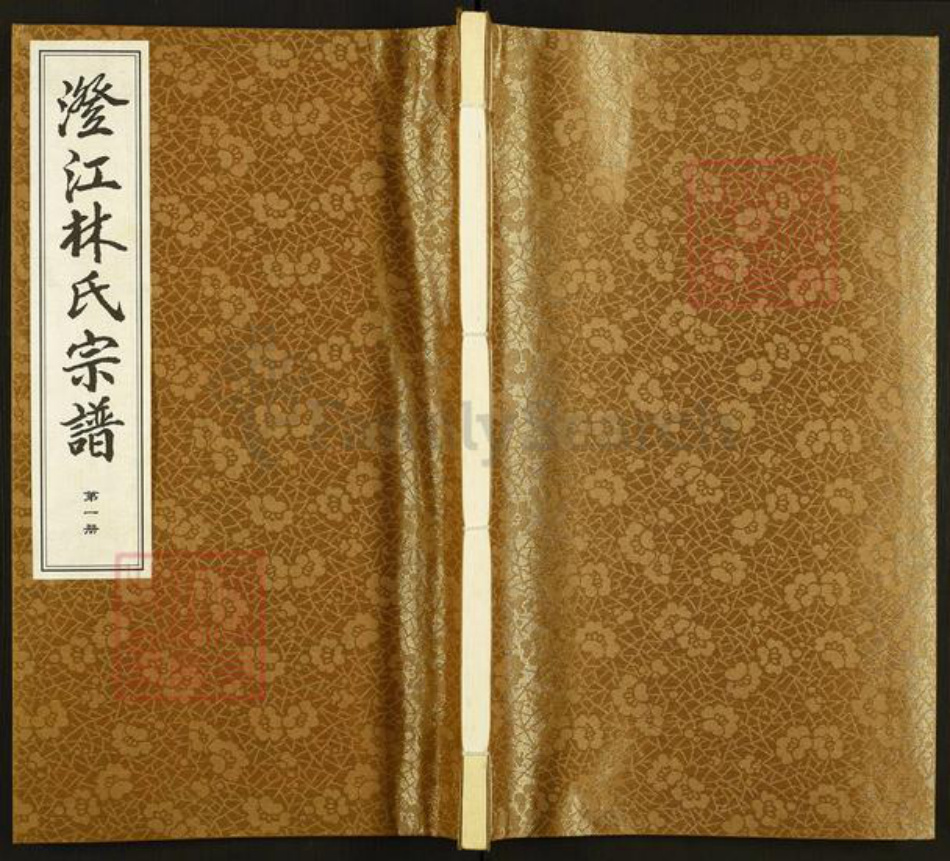 澄江林氏宗譜
第一册
FamilySearch